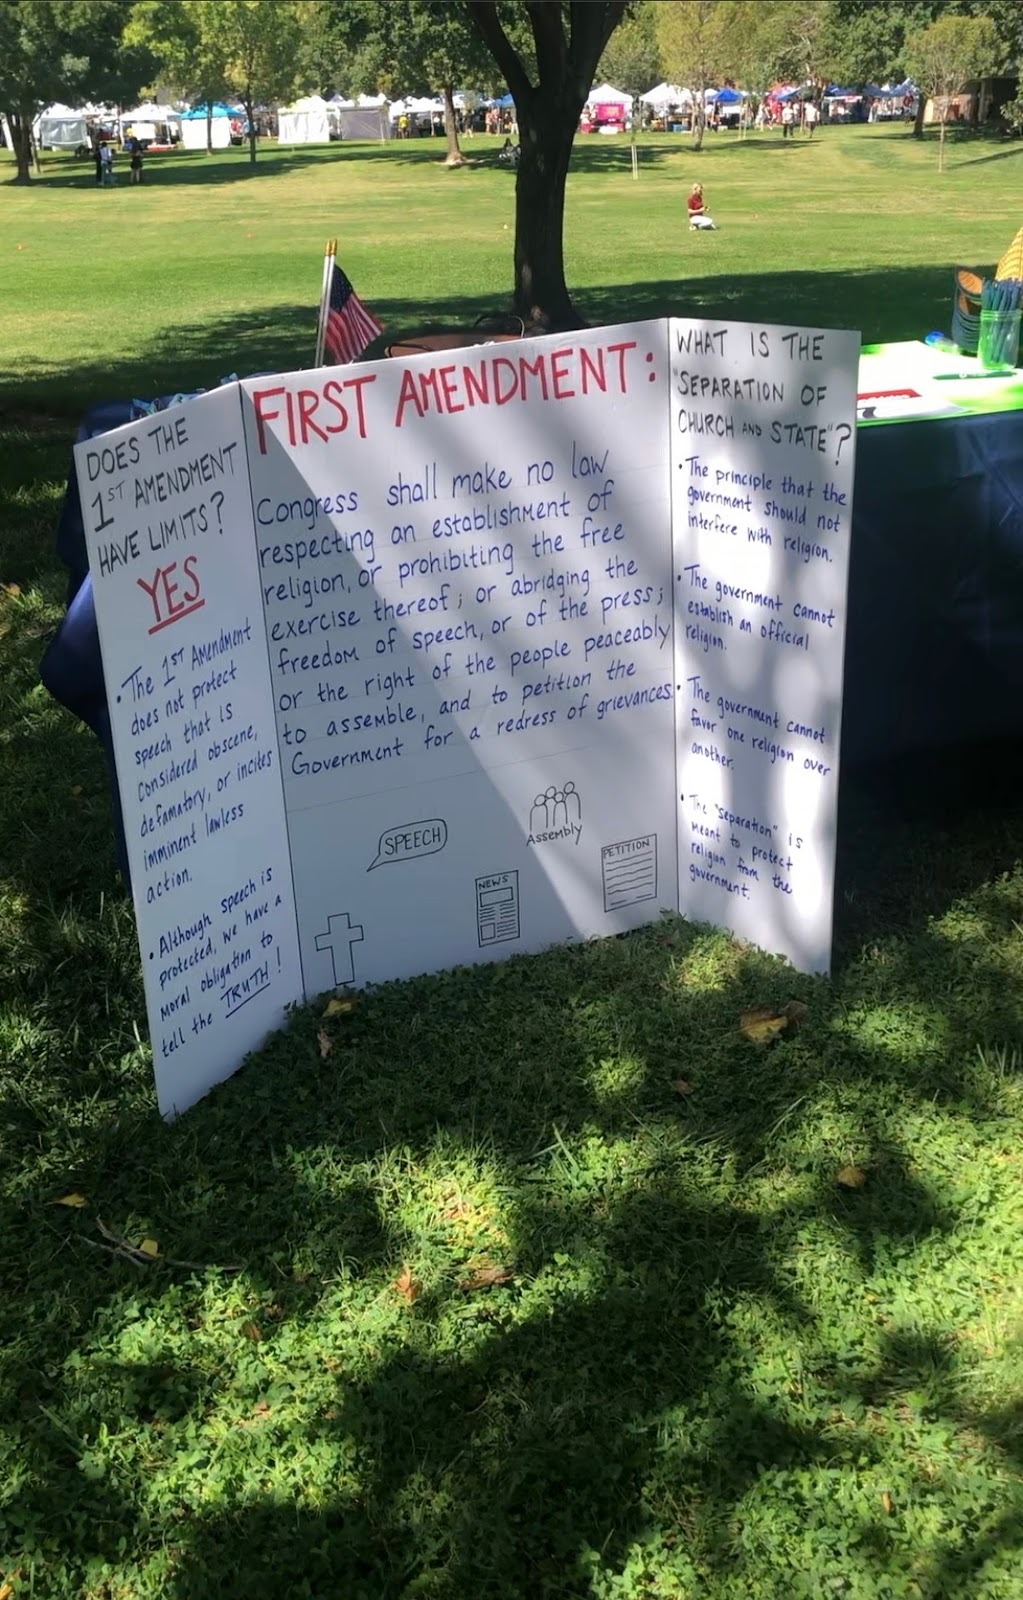 DOES THE
1ST AMENDMENT
HAVE LIMITS?
YES
• The 1ST Amendment
does not protect
speech that is
considered obscene,
defamatory, or incites
imminent lawless
action.
• Although speech is
protected, we have a
moral obligation to
tell the TRUTH!
FIRST AMENDMENT:
Congress shall make no law
respecting an establishment of
religion, or prohibiting the free
exercise thereof; or abridging the
freedom of speech, or of the press;
or the right of the people peaceably
to assemble, and to petition the
Government for a redress of grievances.
SPEECH
Assembly
NEWS
PETITION
WHAT IS THE
"SEPARATION OF
CHURCH AND STATE"?
• The principle that the
government should not
interfere with religion.
• The government cannot
establish an official
religion.
• The government cannot
favor one religion over
another.
• The "separation" is
meant to protect
religion from the
government.